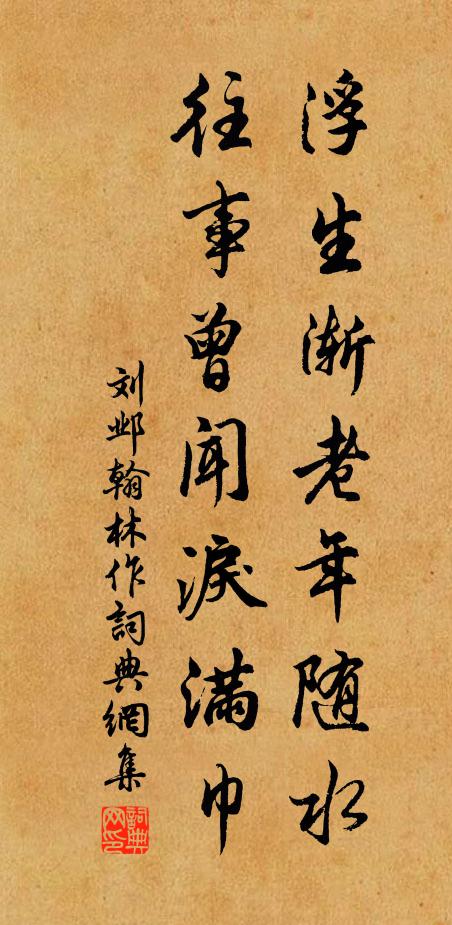 浮生渐老年随水
往事曾闻淚满巾
刘邺翰林作詞典網集
詞典网印